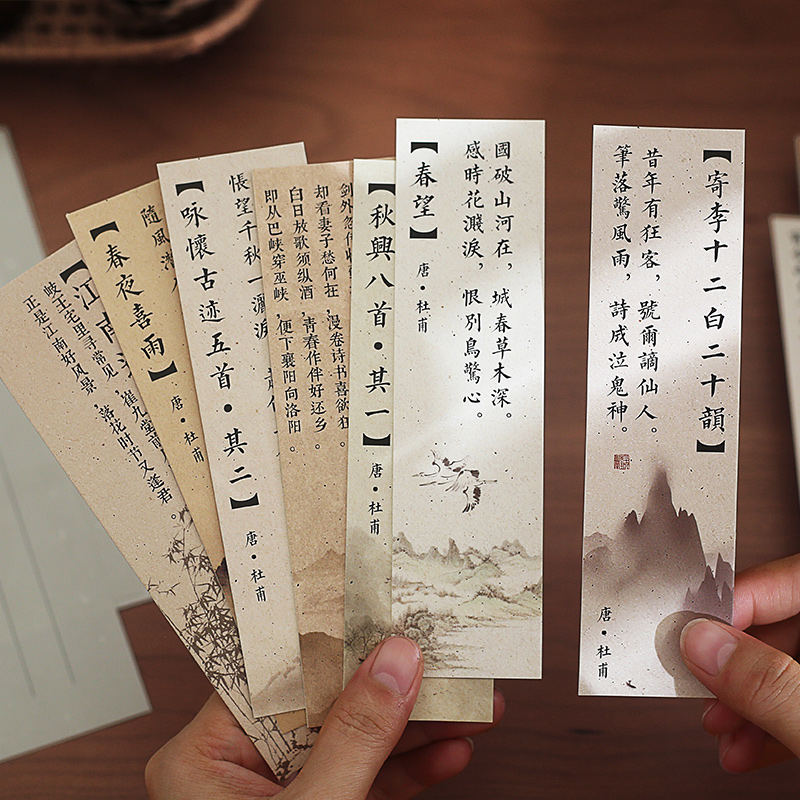 【寄李十二白二十韻】
昔年有狂客，號爾謫仙人。
筆落驚風雨，詩成泣鬼神。
唐•杜甫
國破山河在，城春草木深。
感時花濺淚，恨別鳥驚心。
【春望】
唐•杜甫
【秋興八首•其一】
唐•杜甫
剑外忽传收
却看妻子愁何在，漫卷诗书喜欲狂。
白日放歌须纵酒，青春作伴好还乡。
即从巴峡穿巫峡，便下襄阳向洛阳。
悵望千秋一灑淚
【咏懷古迹五首•其二】
唐•杜甫
隨風潛
【春夜喜雨】
唐•杜甫
【江南
岐王宅里寻常见，崔九堂前
正是江南好风景，落花时节又逢君。